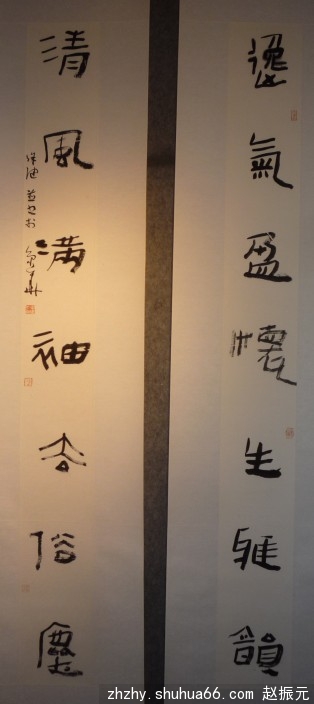 逸氣盈懷生雅韻
清風滿袖去俗塵
zhzhy.shuhua66.com 赵振元